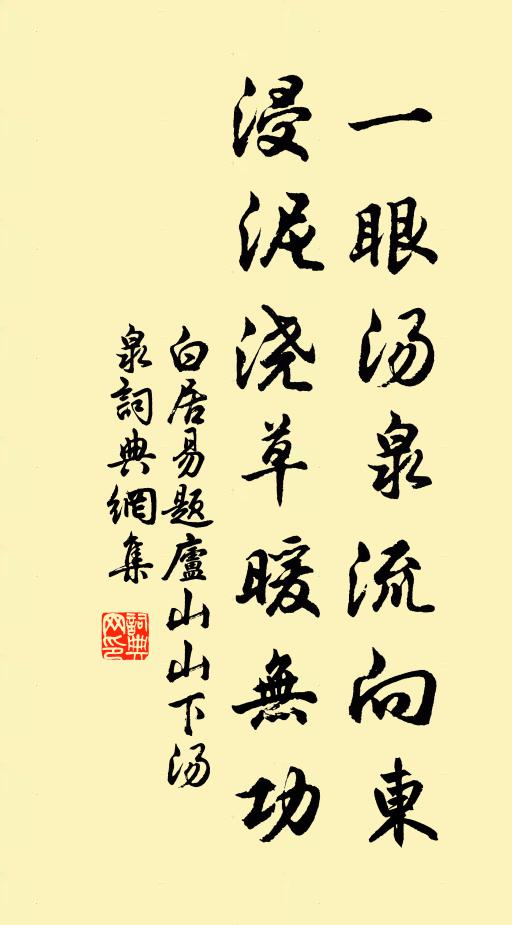 一眼汤泉流向東
浸泥浇草暖無功
白居易题廬山山下汤
泉詞典網集
詞典網印